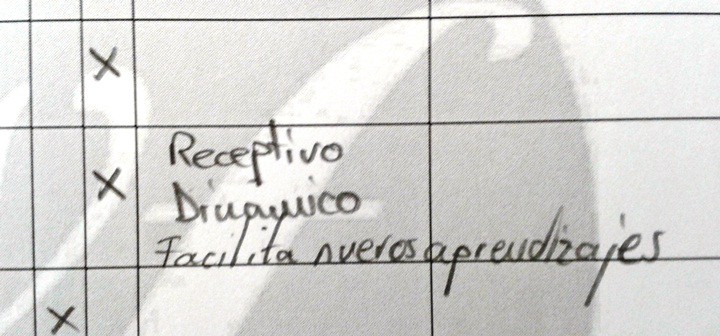 X
Receptivo
X
Dinamico
Facilita nuevos aprendizajes
X